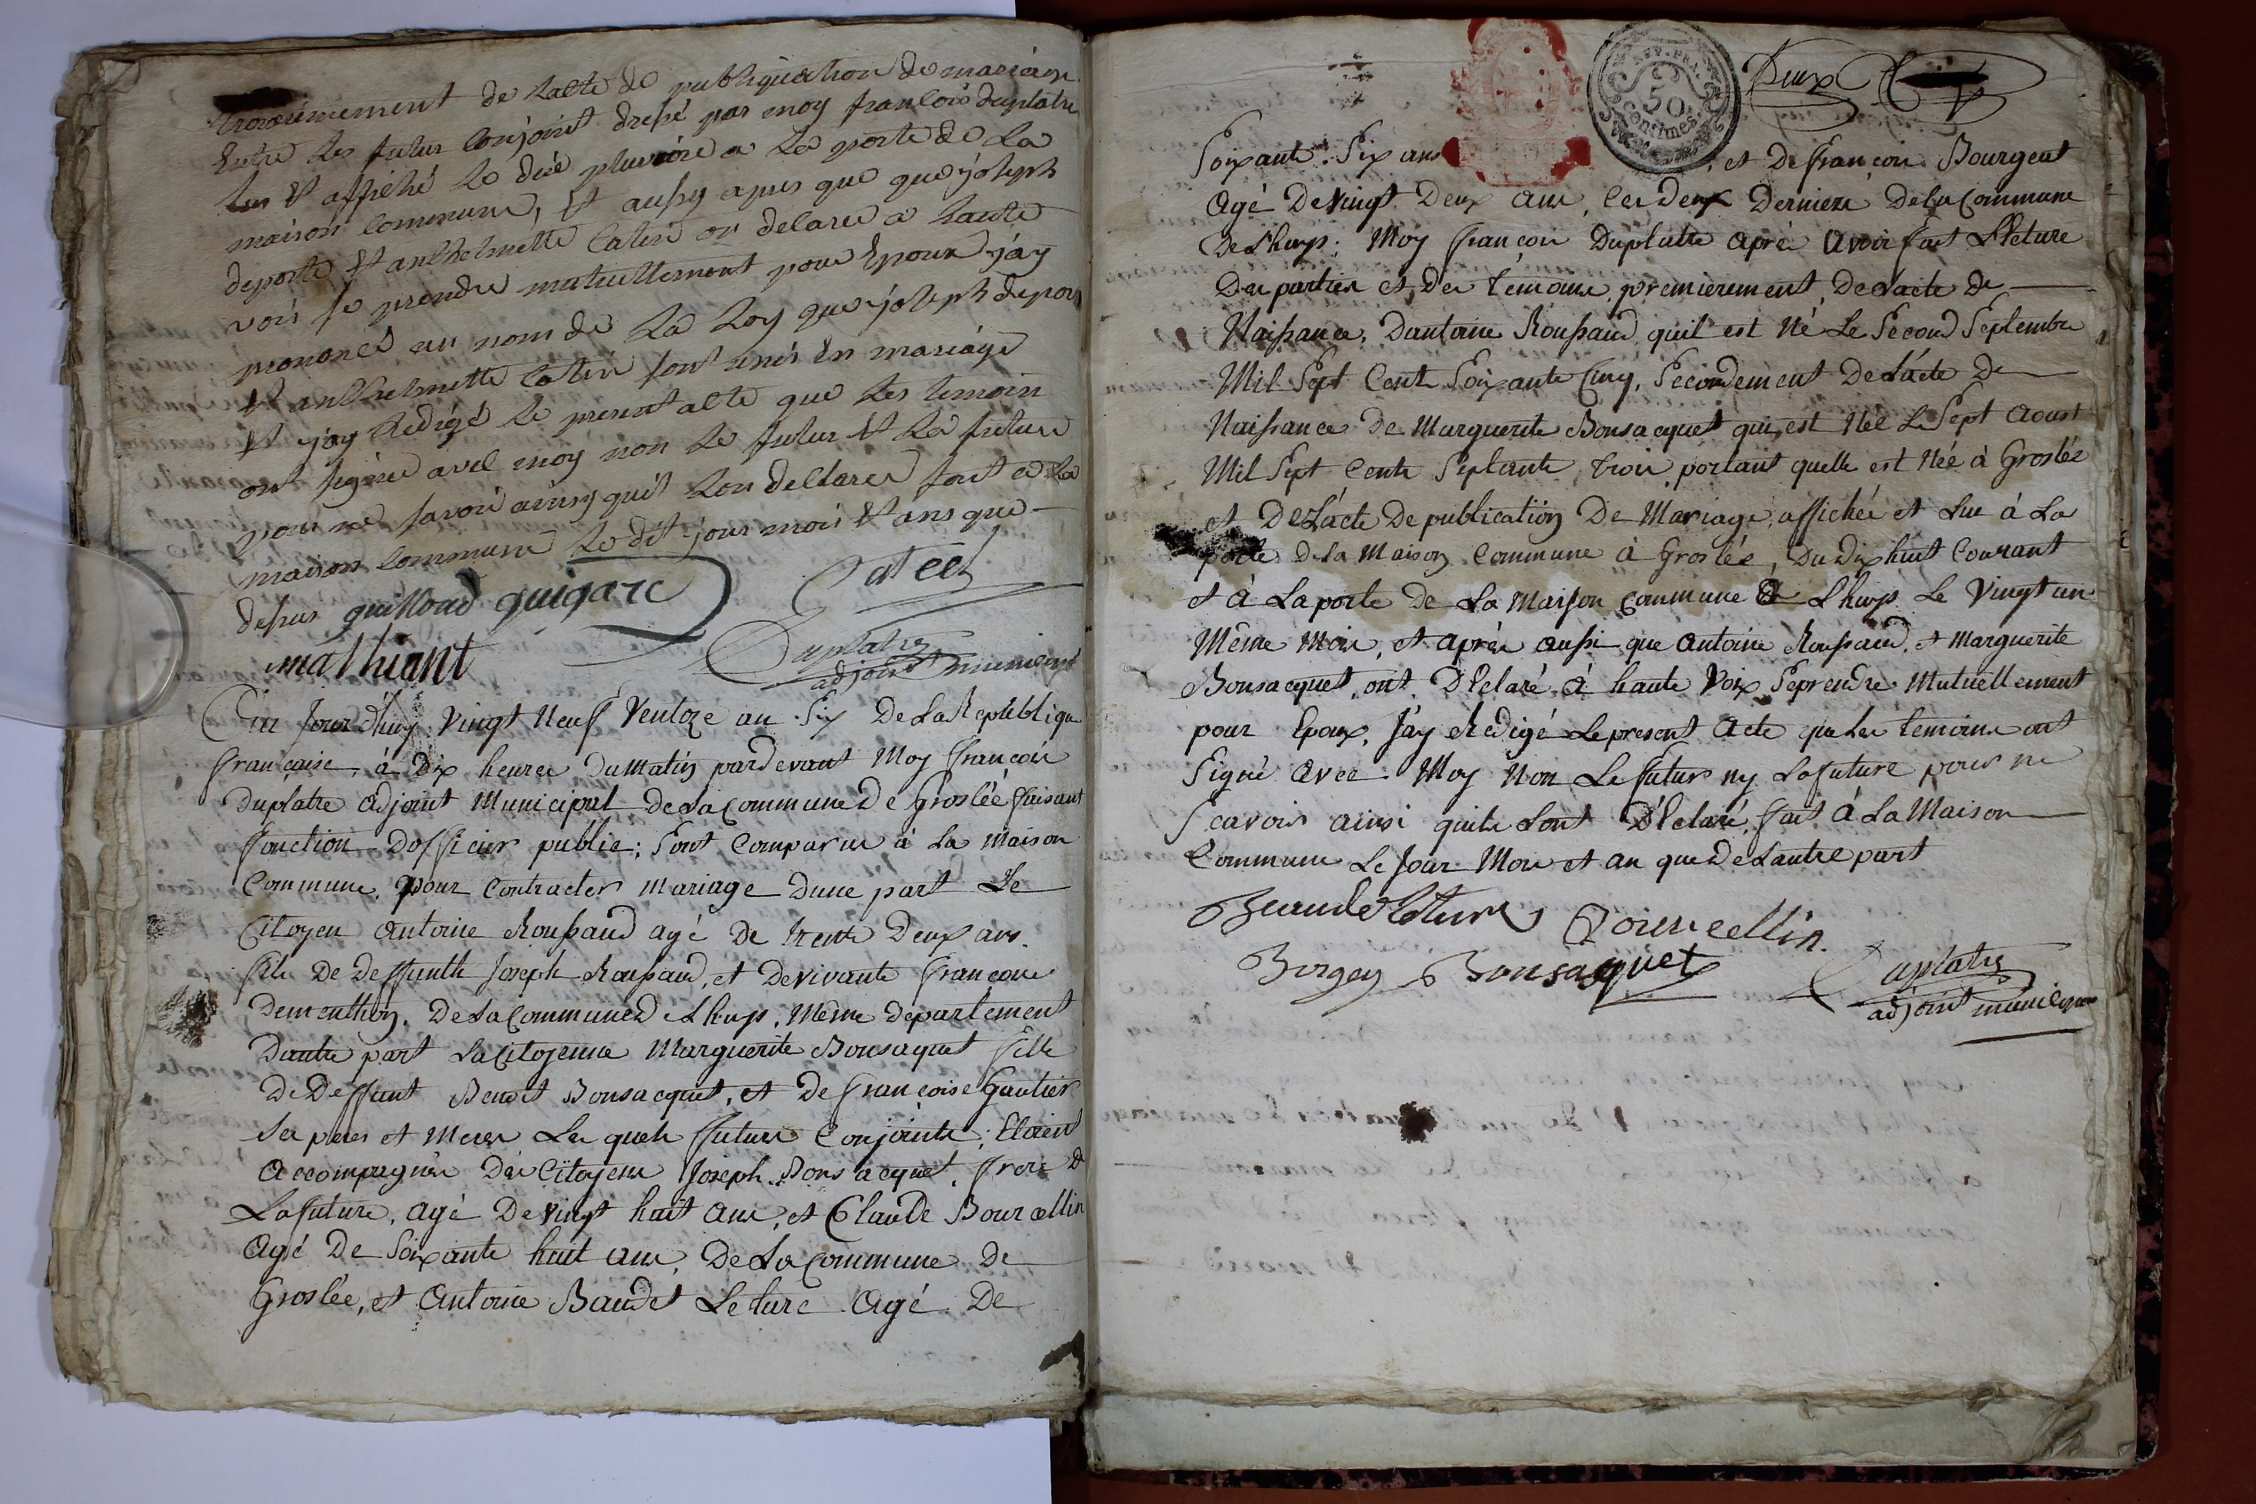 troisiemement de lacte de publiquation de mariage
Entre les futur Conjoint dresé par moy francois duplatre
lus et affiché le dix pluviose a la porte de la
maison commune, et aussy apres que que joseph
deporte et anthelmette Catin on delaré a haute
vois se prendre mutuellement pour Epoux j'ay
prononcé au nom de La Loy que joseph depor
et anthelmette Catin sont unis En mariage
et j'ay Redigé le present acte que les temoin
ont signée avec moy non le futur et la future
pour ne savoir ainsy quil lon declarer fait a la
maison commune le dit jour mois et ans que
desus guilloud guigard Catin
mathiant Duplatre
adjoint municipal
Ein Jour dhuy Vingt Neuf Ventoze an Six De La Republique
française, à Dix heures Du matin pardevant Moy francois
Duplatre adjoint Municipal De La Commune De Groslée faisant
fonction Dofficier public; Sont Comparue à La maison
Commune, pour Contracter mariage Dune part Le
Citoyen antoine Roussaud agé De trente Deux ans.
fils De Deffunth Joseph Roussaud, et De vivante francoise
Dementhon, De La Commune D Lhuys, Même département
Dautre part La Citoyenne Marguerite Bonsaquet fille
De Deffunt Benoit Bonsacquet, et De francoise Gautier
Ses peres et Meres Les quels future Conjointe, Etoient
accompagnée Des Citoyens Joseph Bonsacquet, frere De
La future, agé De Vingt huit ans, et Claude Bourcellin
agé De Soixante huit ans, De La Commune De
Groslée, et Antoine Baudet Leture agé De
Deux
50
Centimes
Soixante Six ans, et De françois Bourgeat
agé De vingt Deux ans, Les Deux Derniere De La Commune
De Lhuys; Moy françois Duplatre après avoir fait Lecture
Des parties et Des temoins, premierement, De Lacte De
Naissance, Dantoine Roussaud quil est Né Le Second Septembre
Mil Sept Cent Soixante Cinq, Secondement De Lacte De
Naissance De Marguerite Bonsacquet qui est Née Le Sept aoust
Mil Sept Cents Septante trois, portant quelle est Née à Groslée
et De Lácte De publication De Mariage, affichée et Lue à La
porte De La Maison Commune à Groslée, Du Dix huit Courant
et à La porte De La Maison Commune De Lhuys Le Vingt un
Même Mois, et après aussi que Antoine Roussaud, et Marguerite
Bonsacquet, ont Déclaré à haute Voix Seprendre Mutuellement
pour Epoux, J'ay Redigé Le present Acte que Les temoins ont
Signé avec Moy Non Le futur ny La future pour ne
Scavoir ainsi quils Lont Déclaré, fait à La Maison
Commune Le Jour Mois et an que De Lautre part
Beaude Leture Bourcellin
Borgey Bonsaquet Duplatre
adjoint municipal